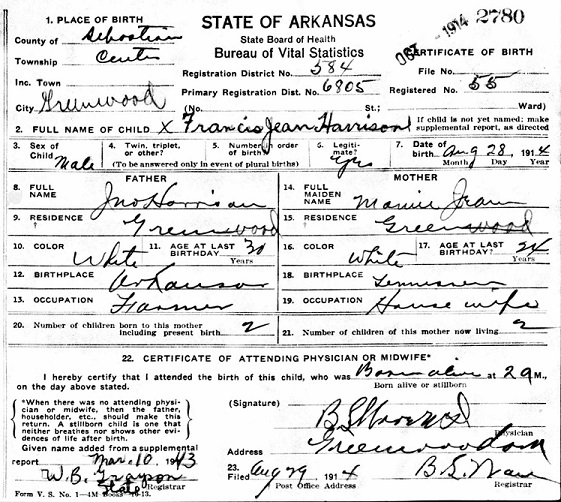 OCT - 1914 2780
1. PLACE OF BIRTH
STATE OF ARKANSAS
County of Sebastian
State Board of Health
Township Center
Bureau of Vital Statistics
CERTIFICATE OF BIRTH
Inc. Town
Registration District No. 584
File No.
City Greenwood
Primary Registration Dist. No. 6805
Registered No. 55
(No. St.; Ward)
2. FULL NAME OF CHILD X Francis Jean Harrison
If child is not yet named; make supplemental report, as directed
3. Sex of Child Male
4. Twin, triplet, or other?
5. Number, of order of birth
(To be answered only in event of plural births)
6. Legitimate? Yes
7. Date of birth. Aug 28, 1914
Month Day Year
FATHER
MOTHER
8. FULL NAME Jno Harrison
14. FULL MAIDEN NAME Jean
9. RESIDENCE Greenwood
15. RESIDENCE Greenwood
10. COLOR White
11. AGE AT LAST BIRTHDAY 30 Years
16. COLOR White
17. AGE AT LAST BIRTHDAY? 24 Years
12. BIRTHPLACE Arkansas
18. BIRTHPLACE Tennessee
13. OCCUPATION Farmer
19. OCCUPATION House wife
20. Number of children born to this mother including present birth 2
21. Number of children of this mother now living 2
22. CERTIFICATE OF ATTENDING PHYSICIAN OR MIDWIFE*
I hereby certify that I attended the birth of this child, who was Born alive at 2 9 M.,
on the day above stated.
Born alive or stillborn
*When there was no attending physician or midwife, then the father, householder, etc., should make this return. A stillborn child is one that neither breathes nor shows other evidences of life after birth.
(Signature)
Physician
Given name added from a supplemental
Address Greenwood
report Mar. 10, 1943
23. Filed Aug 29 1914
W. B. Grayson
State Registrar
Post Office Address
Registrar
Form V. S. No. 1—4M Books